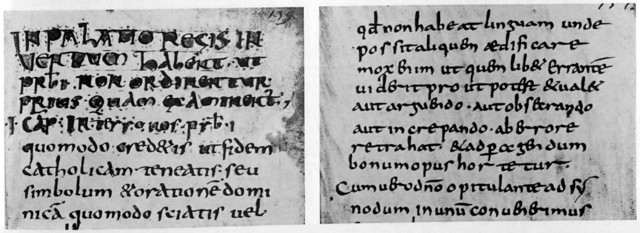 IN PALATIO REGIS IN
VENTUM HABENT· UT
PRBI· NON ORDINENTUR
PRIUS QUAM EXAMINENT,
I· CAP· INTERROG VOS PRBI
quomodo cred&is ut fidem
catholicam teneatis seu
simbolum & orationē domi
nicā quomodo sciatis vel
qđ non habeat linguam unde
possit aliquem ædificare
mox enim ut quem lib& errantē
viderit prout potest & val&
aut arguendo· aut obsecrando
aut increpando· ab errore
retrahat· & ad peragendum
bonum opus hortetur·
Cum ergo dño opitulante ad sy
nodum in unū convenerimus